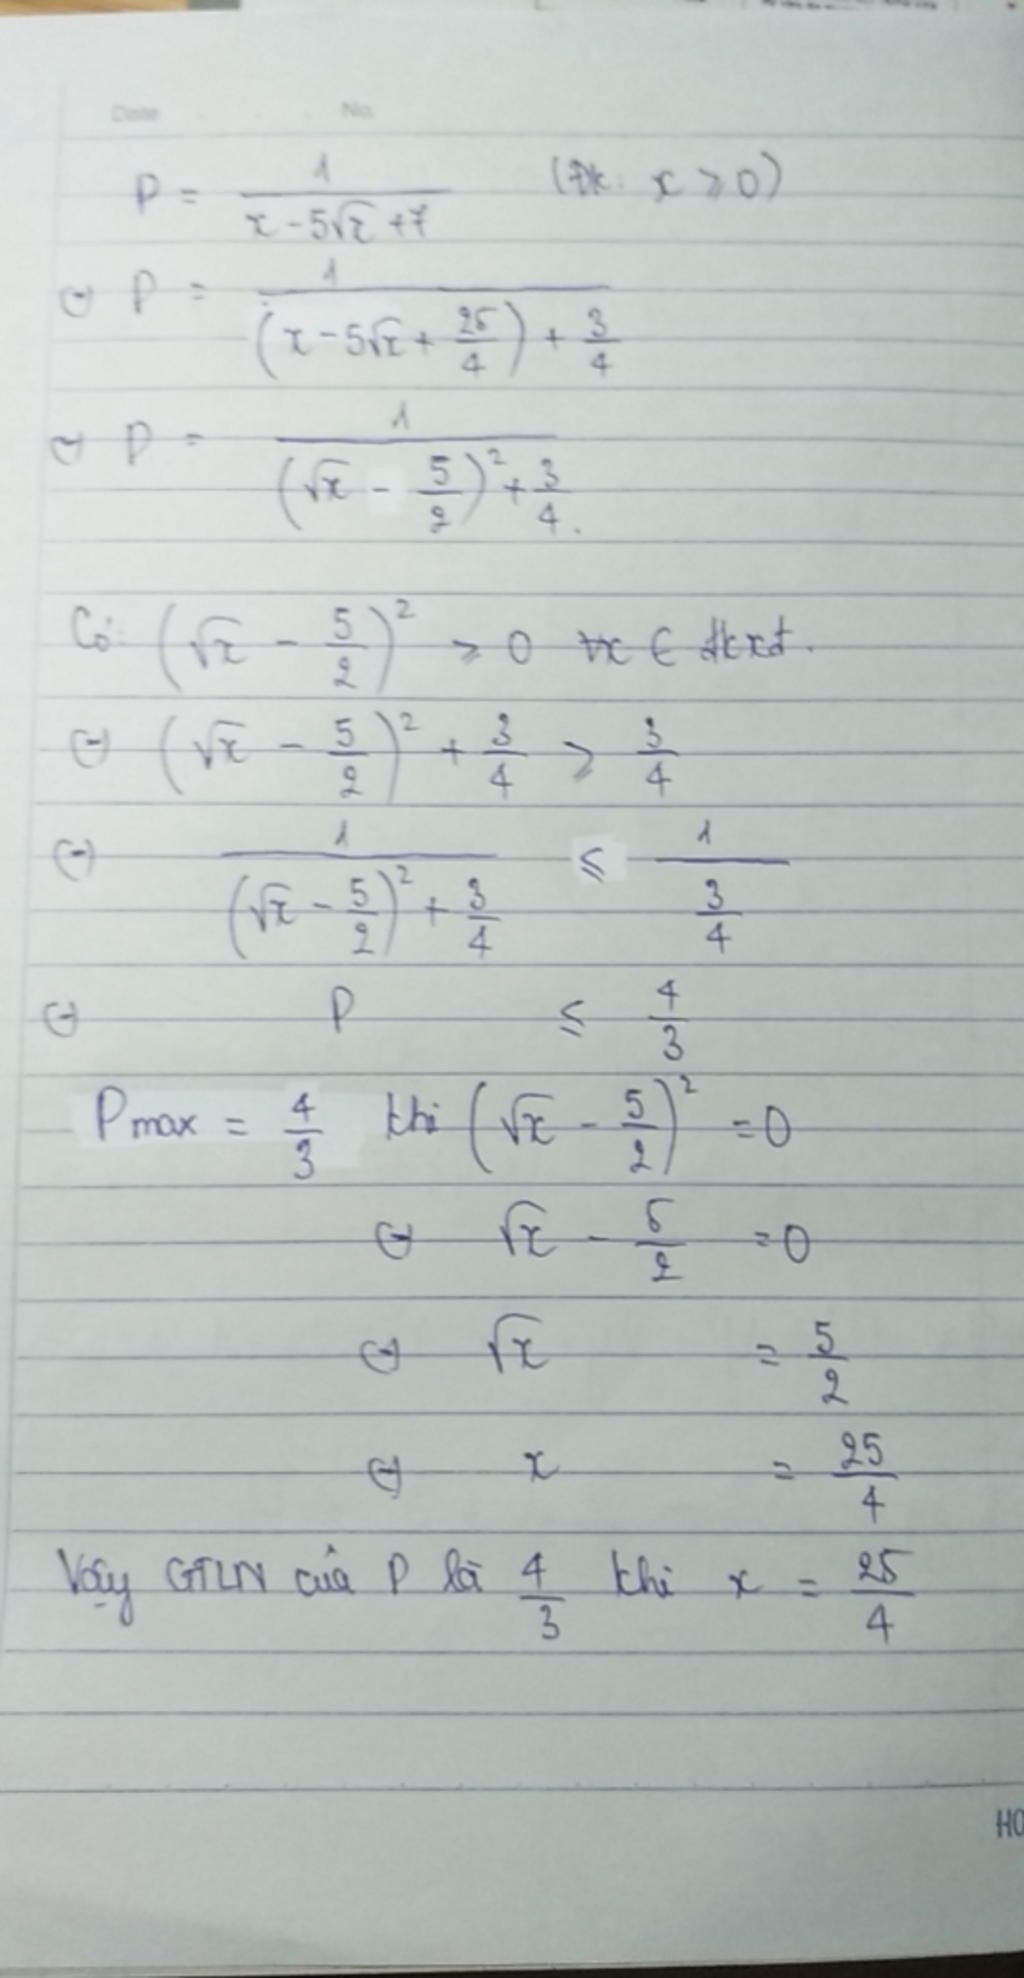 Date No.
P = 1/(x - 5√x + 7) (Đk: x ≥ 0)
⇔ P = 1/((x - 5√x + 25/4) + 3/4)
⇔ P = 1/((√x - 5/2)² + 3/4).
Có: (√x - 5/2)² ≥ 0 ∀x ∈ đkxđ.
⇔ (√x - 5/2)² + 3/4 ≥ 3/4
⇔ 1/((√x - 5/2)² + 3/4) ≤ 1/(3/4)
⇔ P ≤ 4/3
Pmax = 4/3 khi (√x - 5/2)² = 0
⇔ √x - 5/2 = 0
⇔ √x = 5/2
⇔ x = 25/4
Vậy GTLN của P là 4/3 khi x = 25/4
HO